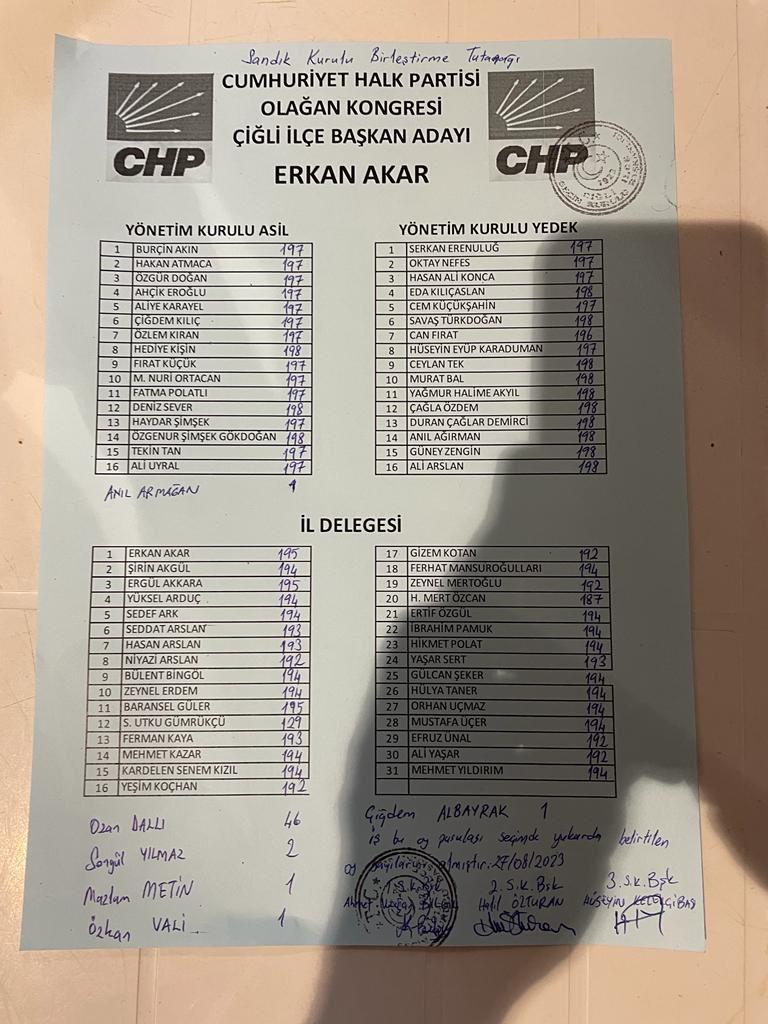 Sandık Kurulu Birleştirme Tutanağı
CUMHURİYET HALK PARTİSİ
OLAĞAN KONGRESİ
ÇİĞLİ İLÇE BAŞKAN ADAYI
ERKAN AKAR
CHP
CHP
YÖNETİM KURULU ASİL
1 BURÇİN AKIN 197
2 HAKAN ATMACA 197
3 ÖZGÜR DOĞAN 197
4 AHÇİK EROĞLU 197
5 ALİYE KARAYEL 197
6 ÇİĞDEM KILIÇ 197
7 ÖZLEM KIRAN 197
8 HEDİYE KİŞİN 198
9 FIRAT KÜÇÜK 197
10 M. NURİ ORTACAN 197
11 FATMA POLATLI 197
12 DENİZ SEVER 198
13 HAYDAR ŞİMŞEK 197
14 ÖZGENUR ŞİMŞEK GÖKDOĞAN 198
15 TEKİN TAN 197
16 ALİ UYRAL 197
ANIL ARMAĞAN 1
YÖNETİM KURULU YEDEK
1 SERKAN ERENULUĞ 197
2 OKTAY NEFES 197
3 HASAN ALİ KONCA 197
4 EDA KILIÇASLAN 198
5 CEM KÜÇÜKŞAHİN 197
6 SAVAŞ TÜRKDOĞAN 198
7 CAN FIRAT 196
8 HÜSEYİN EYÜP KARADUMAN 197
9 CEYLAN TEK 198
10 MURAT BAL 198
11 YAĞMUR HALİME AKYIL 198
12 ÇAĞLA ÖZDEM 198
13 DURAN ÇAĞLAR DEMİRCİ 198
14 ANIL AĞIRMAN 198
15 GÜNEY ZENGİN 198
16 ALİ ARSLAN 198
İL DELEGESİ
1 ERKAN AKAR 195
2 ŞİRİN AKGÜL 194
3 ERGÜL AKKARA 195
4 YÜKSEL ARDUÇ 194
5 SEDEF ARK 194
6 SEDDAT ARSLAN 193
7 HASAN ARSLAN 193
8 NİYAZİ ARSLAN 192
9 BÜLENT BİNGÖL 194
10 ZEYNEL ERDEM 194
11 BARANSEL GÜLER 195
12 S. UTKU GÜMRÜKÇÜ 129
13 FERMAN KAYA 193
14 MEHMET KAZAR 194
15 KARDELEN SENEM KIZIL 194
16 YEŞİM KOÇHAN 192
17 GİZEM KOTAN 192
18 FERHAT MANSUROĞULLARI 194
19 ZEYNEL MERTOĞLU 192
20 H. MERT ÖZCAN 187
21 ERTİF ÖZGÜL 194
22 İBRAHİM PAMUK 194
23 HİKMET POLAT 194
24 YAŞAR SERT 193
25 GÜLCAN ŞEKER 194
26 HÜLYA TANER 194
27 ORHAN UÇMAZ 194
28 MUSTAFA ÜÇER 194
29 EFRUZ ÜNAL 192
30 ALİ YAŞAR 192
31 MEHMET YILDIRIM 194
Ozan DALLI 46
Songül YILMAZ 2
Mazlum METİN 1
Özkan VALİ 1
Çiğdem ALBAYRAK 1
iş bu oy pusulası seçimde yukarda belirtilen
oy sayılarını almıştır. 27/08/2023
1. S.K. Bşk 2. S.K. Bşk 3. S.K. Bşk
Ahmet Halil ÖZTURAN HÜSEYİN